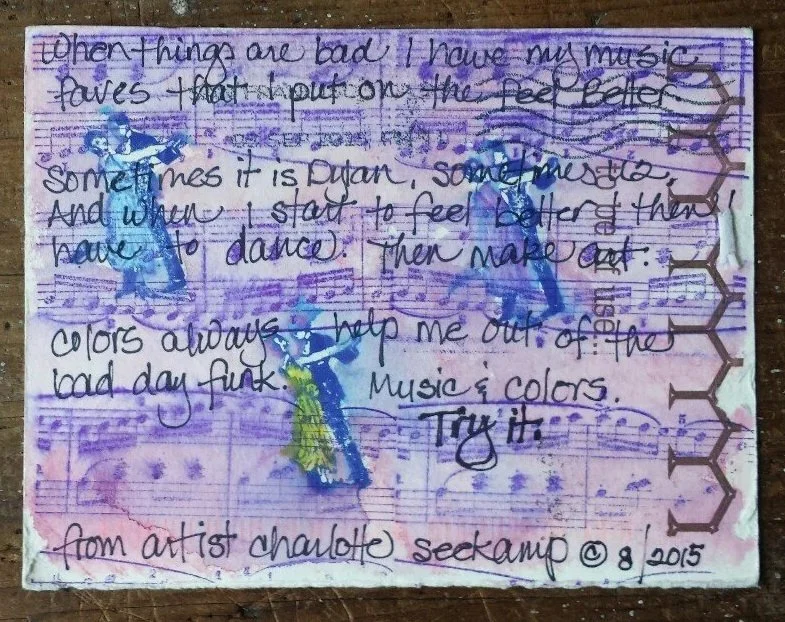 When things are bad I have my music
faves that I put on the feel Better
Sometimes it is Dylan, sometimes U2.
And when I start to feel better I then
have to dance. Then make art.
colors always help me out of the
bad day funk. Music & colors.
Try it.
from artist charlotte seekamp © 8/2015
be of use...